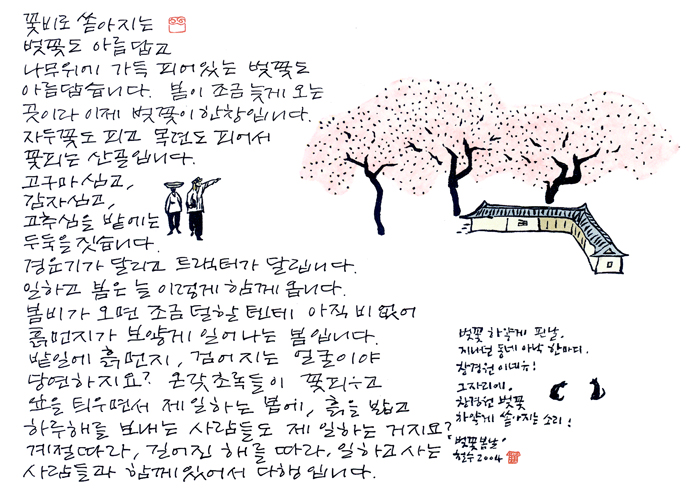 꽃비로 쏟아지는
벚꽃도 아름답고
나무위에 가득 피어있는 벚꽃도
아름답습니다. 봄이 조금 늦게 오는
곳이라 이제 벚꽃이 한창입니다.
자두꽃도 피고 목련도 피어서
꽃피는 산골입니다.
고구마심고,
감자심고,
고추심을 밭에는
두둑을 짓습니다.
경운기가 달리고 트랙터가 달립니다.
일하고 봄은 늘 이렇게 함께 옵니다.
봄비가 오면 조금 덜할텐데 아직 비 없어
흙먼지가 보얗게 일어나는 봄입니다.
밭일에 흙먼지, 검어지는 얼굴이야
당연하지요? 온갖 초록들이 꽃피우고
잎을 틔우면서 제 일하는 봄에, 흙을 밟고
하루해를 보내는 사람들도 제 일하는 거지요?
계절따라, 길어진 해를 따라, 일하고 사는
사람들과 함께 있어서 다행입니다.
벚꽃 하얗게 핀 날.
지나던 동네 아낙 한마디.
창경원이네유!
그 자리에.
창경원 벚꽃
하얗게 쏟아지는 소리!
"벚꽃 봄날"
철수 2004